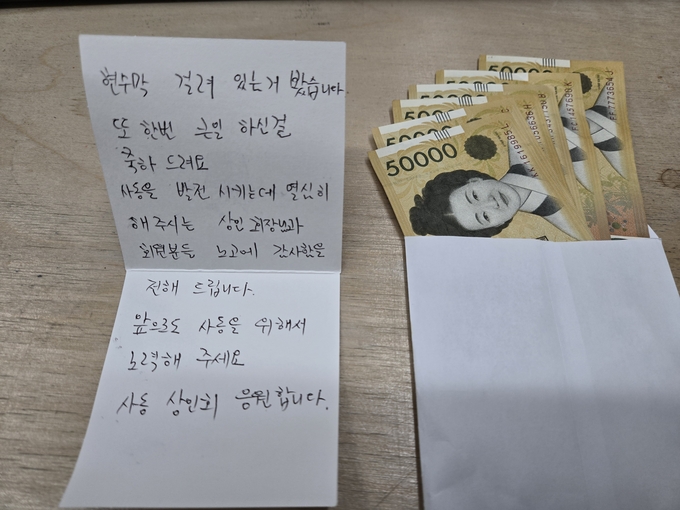 현수막 걸려 있는거 봤습니다.
또 한번 큰일 하신걸
축하 드려요
사동을 발전 시키는데 열심히
해주시는 상인회장님과
회원분들 노고에 감사함을
전해 드립니다.
앞으로도 사동을 위해서
노력해 주세요
사동 상인회 응원합니다.
50000
50000
50000
50000